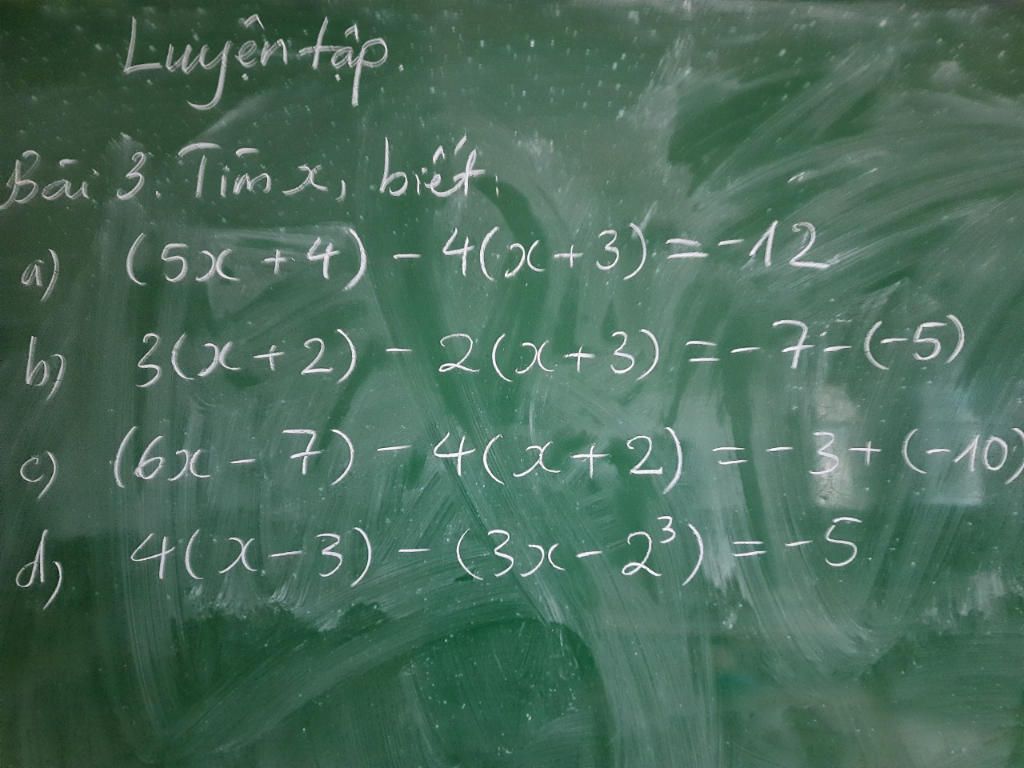 Luyện tập.
Bài 3. Tìm x, biết:
a) (5x + 4) - 4(x + 3) = -12
b) 3(x + 2) - 2(x + 3) = - 7 - (-5)
c) (6x - 7) - 4(x + 2) = - 3 + (-10)
d) 4(x - 3) - (3x - 2³) = - 5